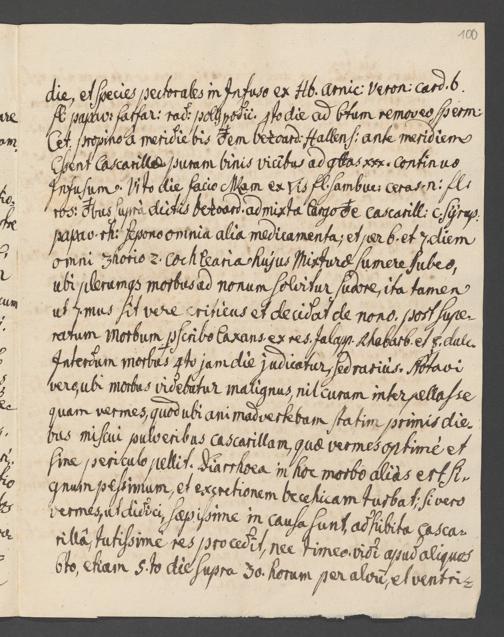 100
die, et species pectorales in Infuso ex Hb. Arnic: Veron: Card. b.
fl. papav: saffar: rad: polypodii. 5to die ad btum removeo sperm:
Cet. propino a meridie bis bezoard: Hallens: ante meridiem
Essent Cascarillae puram binis vicibus ad gttas xxx. continuo
Infusum. Vito die facio ex fl: sambuc: ceras. n: fl:
ros: supra dictis bezoard. admixta largo cascarill: c. syrup.
papav. rh: sepono omnia alia medicamenta; et per 6. et 7. diem
omni 3horio 2. Cochlearia hujus Mixturae sumere jubeo,
ubi plerumq morbus ad nonum solvitur sudore, ita tamen
ut 7mus sit vere criticus et decidat de nono. post supe-
ratum morbum pscribo laxans ex res. Jalapp. Rhabarb. et dulc.
Interdum morbus 4to jam die judicatur, sed rarius. Notavi
vero, ubi morbus videbatur malignus, nil curam interpellasse
quam vermes, quod ubi animadvertebam statim primis die-
bus miscui pulveribus cascarillam, quae vermes optime et
sine periculo pellit. Diarrhoea in hoc morbo alias est si-
gnum pessimum, et excretionem bechicam turbat; si vero
vermes, ut didici, saepissime in causa sunt, adhibita casca-
rilla, tutissime res procedit, nec timeo. vidi apud aliquos
6to, etiam 5.to die supra 30. horum per alvum, et ventri-